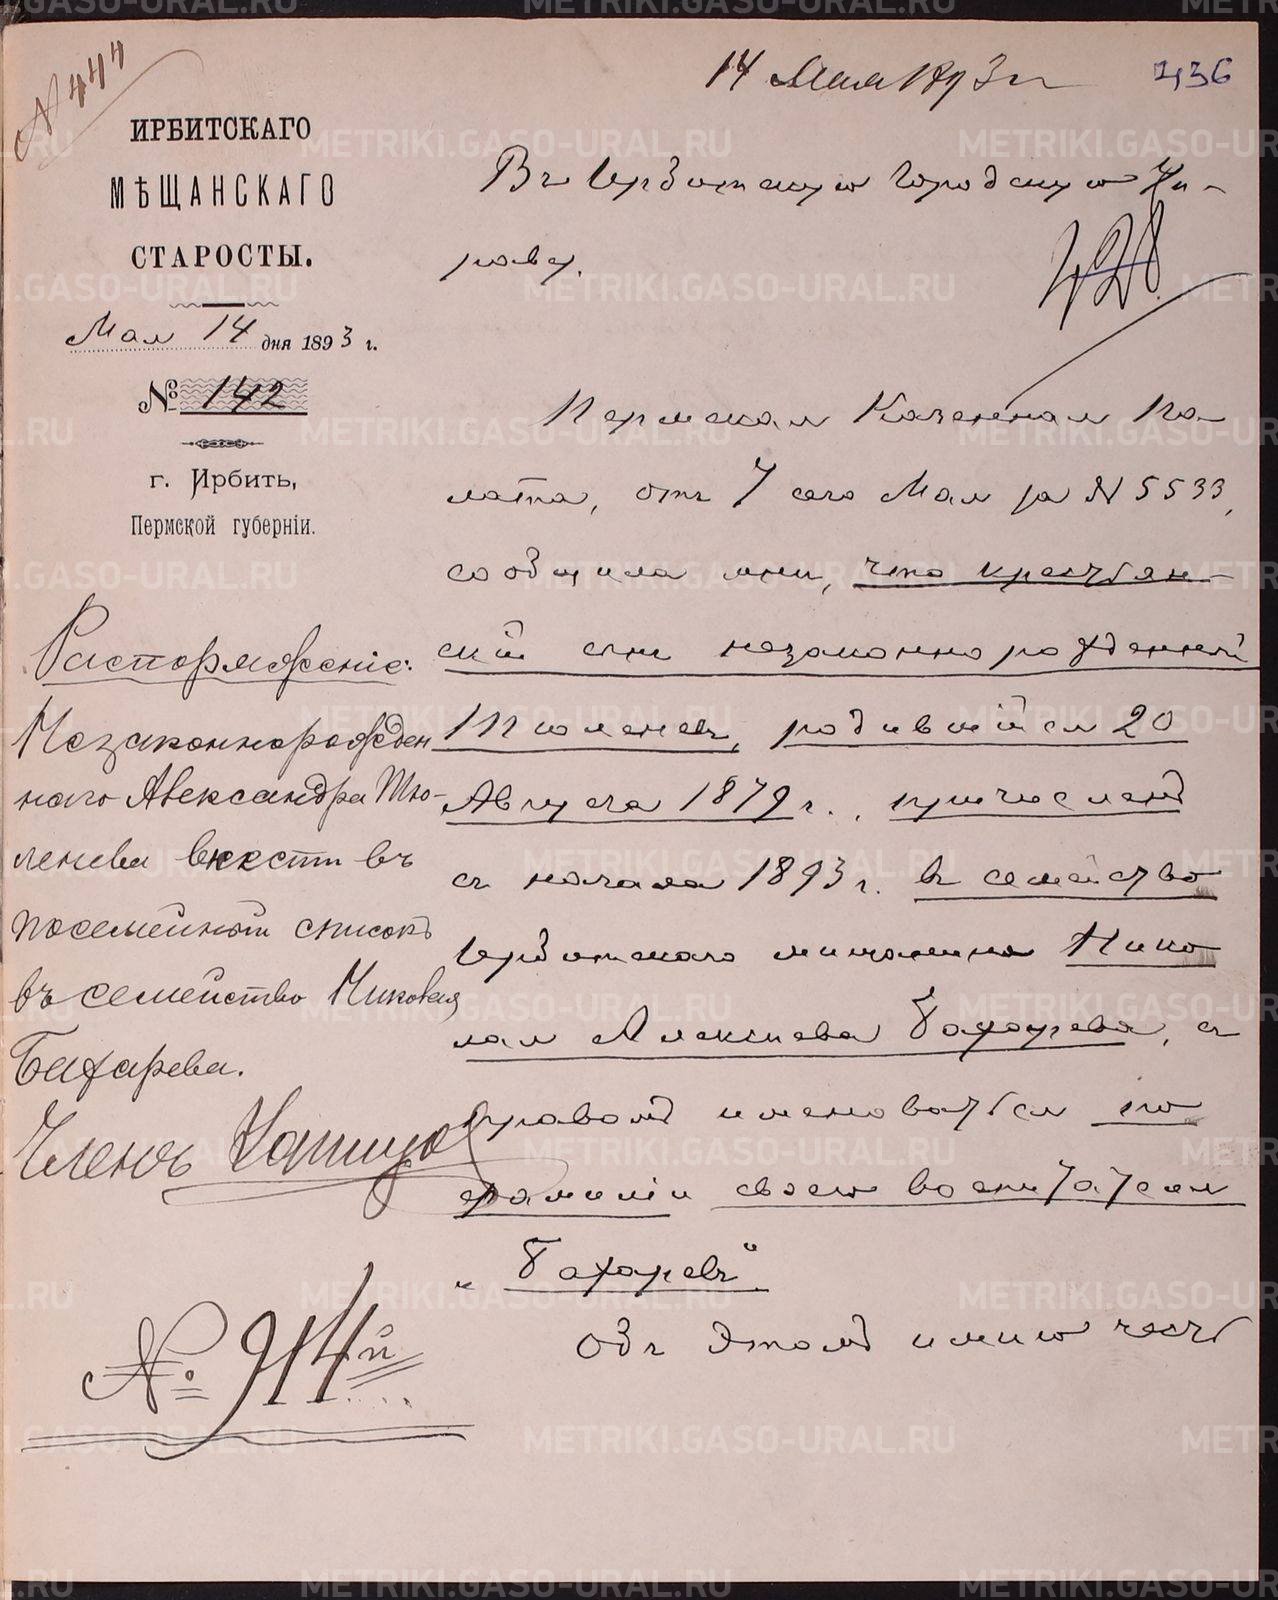 № 444
14 Мая 1893 г.
436
ИРБИТСКАГО
МѢЩАНСКАГО
СТАРОСТЫ.
Мая 14 дня 1893 г.
№ 142
г. Ирбить,
Пермской губерніи.
Въ Ирбитскую Городскую Уп-
раву.
428
Пермская Казенная Па-
лата, отъ 7 сего Мая за № 5533,
сообщила мнѣ, что крестьян-
скій сынъ незаконнорожденный
Тюленевъ, родившійся 20
Августа 1879 г., причисленъ
съ начала 1893 г. въ семейство
Ирбитскаго мѣщанина Нико-
лая Алексѣева Бахарева, съ
правомъ именоваться по
фамиліи своего воспитателя
„Бахаревъ"
Объ этомъ имѣю честь
Распоряженіе:
Незаконнорожден
наго Александра Тю-
ленева внести въ
посемейный списокъ
въ семейство Николая
Бахарева.
Членъ
№ 914й
METRIKI.GASO-URAL.RU